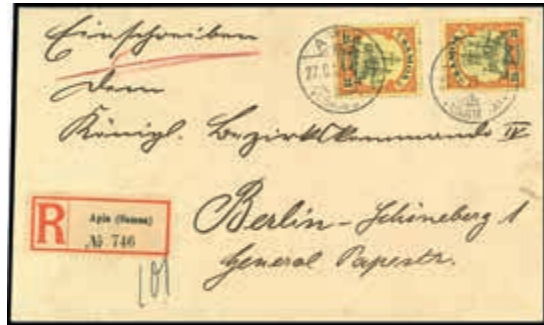 Einschreiben
Dem
Königl. Bezirkskommando IV
Berlin-Schöneberg 1
General Papestr.
R
Apia (Samoa)
№ 746
101
SAMOA
SAMOA